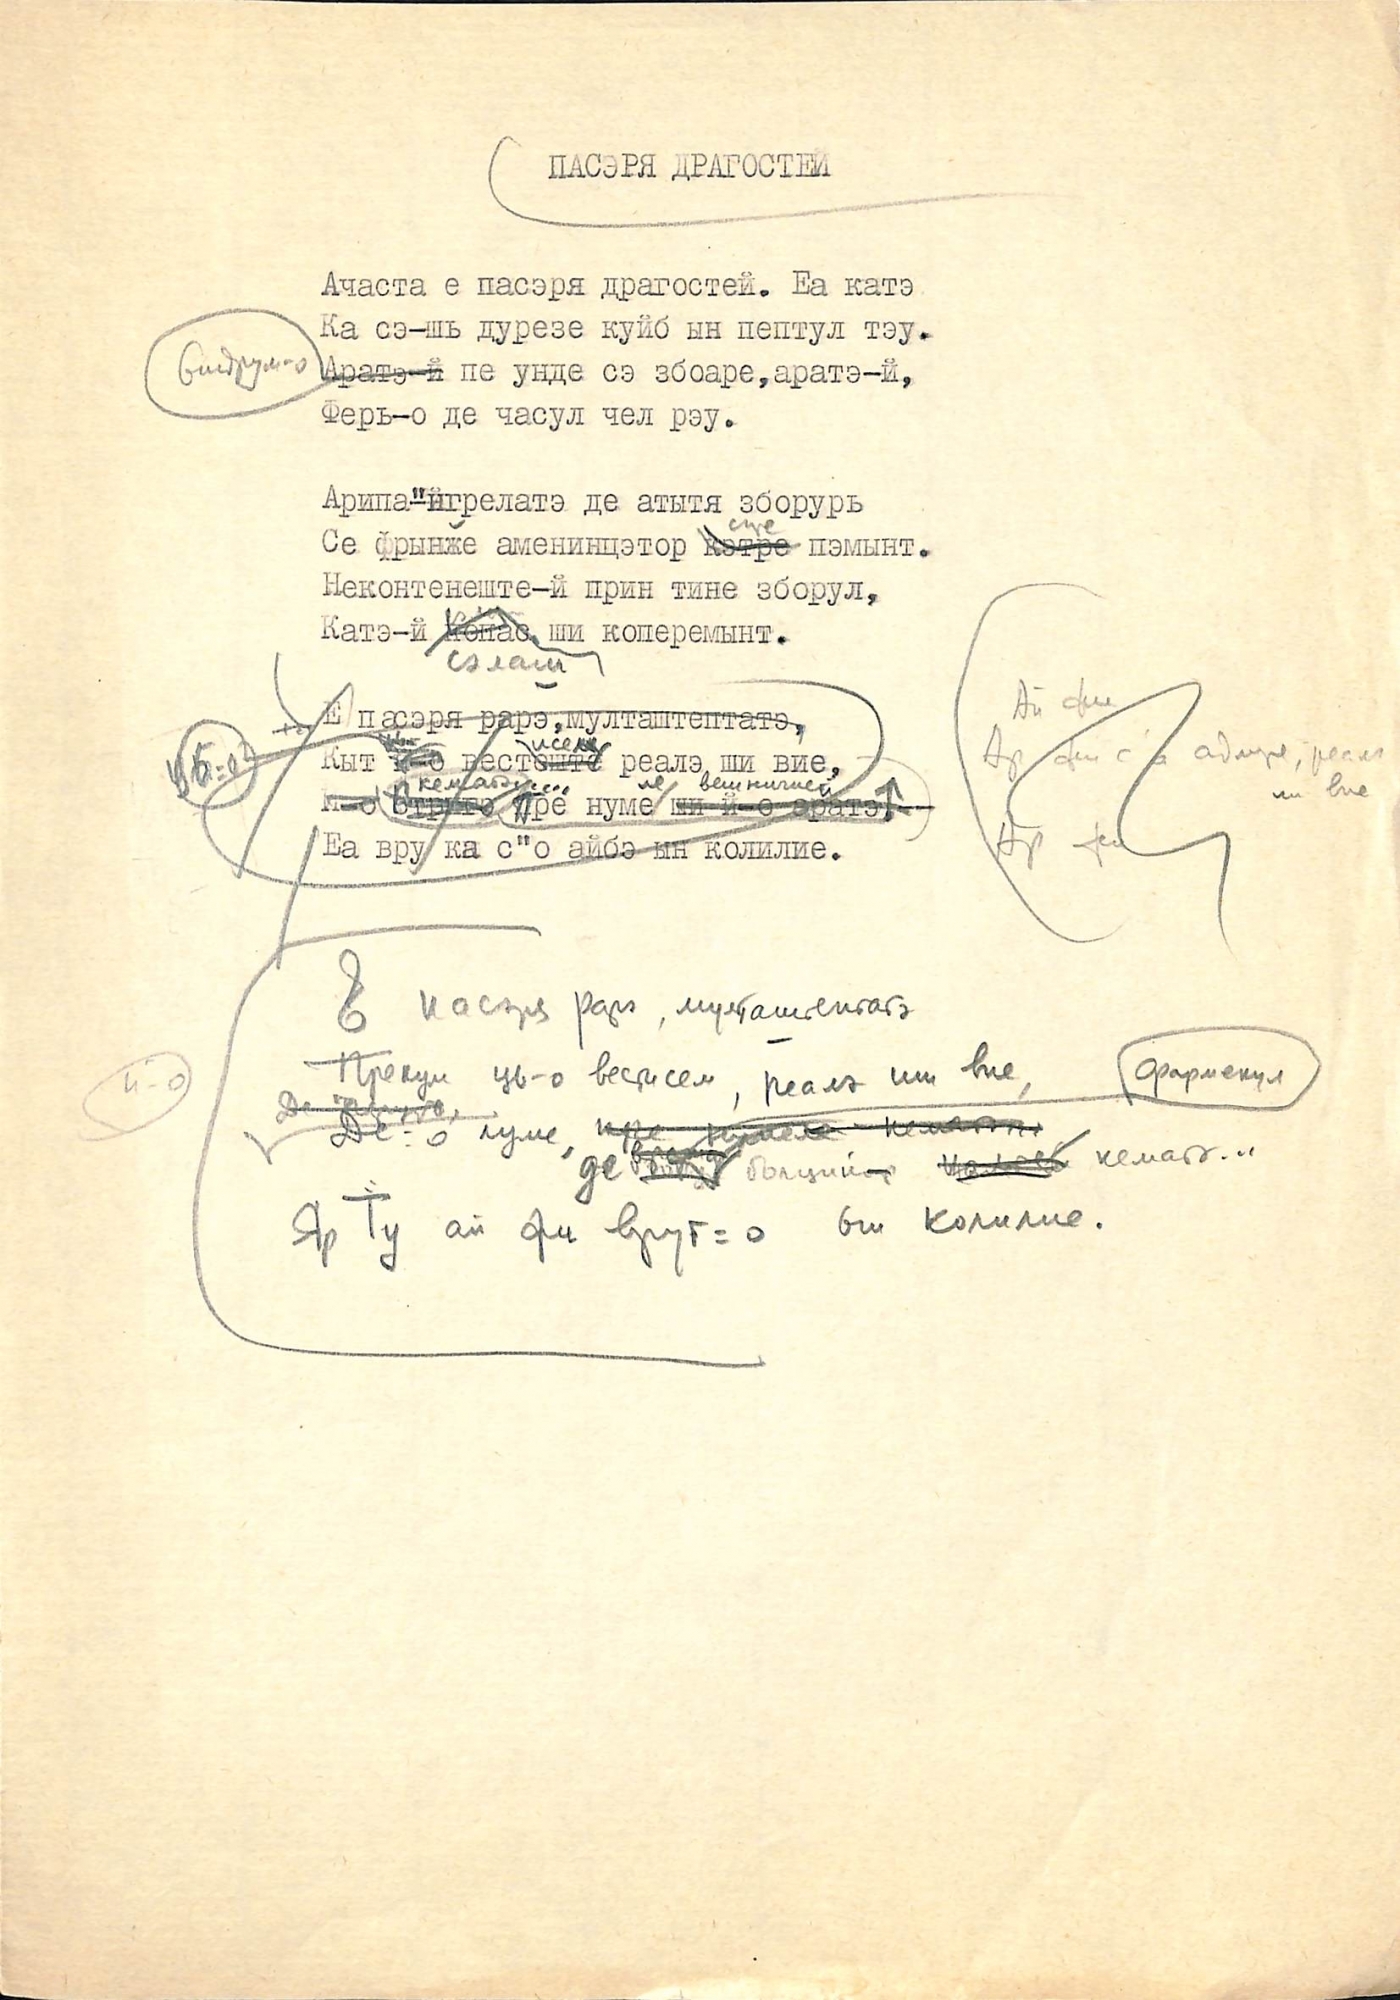 ПАСЭРЯ ДРАГОСТЕЙ
Ачаста е пасэря драгостей. Еа катэ
Ка сэ-шь дурезе куйб ын пептул тэу.
Аратэ-й пе унде сэ збоаре,аратэ-й,
Ферь-о де часул чел рэу.
Арипа"нгрелатэ де атытя зборурь
спре
Се фрынже аменинцэтор кэтре пэмынт.
Неконтенеште-й прин тине зборул,
Катэ-й попас ши коперемынт.
сэлаш
Е пасэря рарэ,мулташтептатэ,
Кыт й-о вестеште реалэ ши вие,
кематэ... ле вешничией
Й-о стригэ пре нуме ши й-о аратэ,
Еа вру ка с"о айбэ ын колилие.
Ай фи
Ар фи с'о адмире, реалэ
ши вие
Ар фи
Е пасэря рарэ, мулташтептатэ
Прекум ць-о вестисем, реалэ ши вие,
фармекул
Де-о луме, пре нумеле кематэ
де кематэ...
Яр Ту ай фи врут-о ын колилие.
й-о